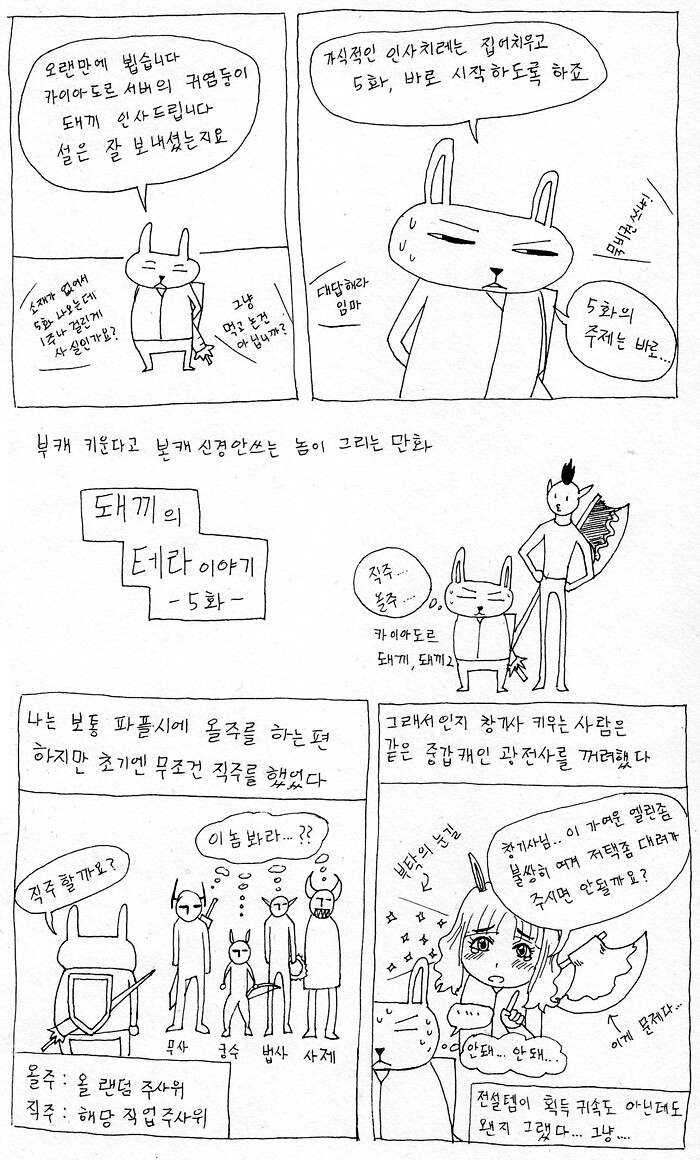 오랜만에 뵙습니다
카이아도르 서버의 귀염둥이
돼끼 인사드립니다
설은 잘 보내셨는지요
소재가 없어서
5화 나오는데
1주나 걸린게
사실인가요?
그냥
먹고 논건
아닙니까?
가식적인 인사치레는 집어치우고
5화, 바로 시작하도록 하죠
묵비권 쓰냐!
대답해라
임마
5화의
주제는 바로...
부캐 키운다고 본캐 신경안쓰는 놈이 그리는 만화
돼끼의
테라 이야기
-5화-
직주....
올주....
카이아도르
돼끼, 돼끼2
나는 보통 파플시에 올주를 하는 편
하지만 초기엔 무조건 직주를 했었다
직주 할까요?
이 놈 봐라...??
무사
궁수
법사
사제
올주 : 올 랜덤 주사위
직주 : 해당 직업 주사위
그래서인지 창기사 키우는 사람은
같은 중갑캐인 광전사를 꺼려했다
부탁의 눈길
창기사님.. 이 가여운 엘린좀
불쌍히 여겨 저택좀 데려가
주시면 안될까요?
....
안돼... 안돼..
이게 문제다...
전설템이 획득 귀속도 아닌데도
왠지 그랬다... 그냥....